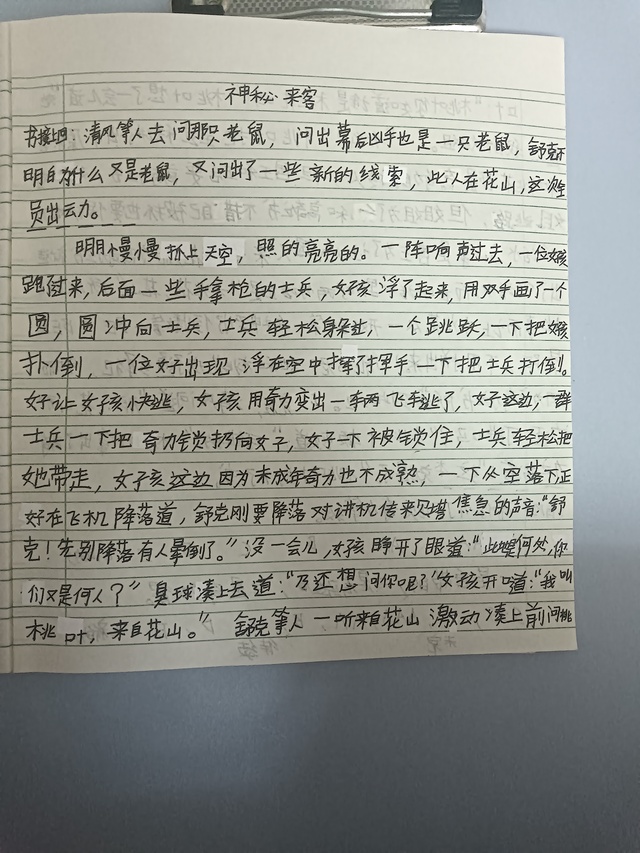 神秘来客
书接上回：清风等人去问那只老鼠，问出幕后凶手也是一只老鼠，舒克不
明白为什么又是老鼠，又问出了一些新的线索，此人在花山，这次全
员出动。
明月慢慢扒上天空，照的亮亮的。一阵响声过去，一位女孩
跑过来，后面一些手拿枪的士兵，女孩浮了起来，用双手画了一个
圆，圆冲向士兵，士兵轻松躲过，一个跳跃，一下把女孩
扑倒，一位女子出现浮在空中挥了挥手一下把士兵打倒。
好让女孩快逃，女孩用奇力变出一车两飞车逃了，女子这边，一群
士兵一下把奇力锁扔向女子，女子一下被锁住，士兵轻松把
她带走，女孩这边因为未成年奇力也不成熟，一下从空落下正
好在飞机降落道，舒克刚要降落对讲机传来贝塔焦急的声音："舒
克！先别降落有人晕倒了。"没一会儿，女孩睁开了眼道："此是何处，你
们又是何人？"臭球凑上去道："乃还想问你呢？"女孩开口道："我叫
桃叶，来自花山。" 舒克等人一听来自花山激动凑上前问桃